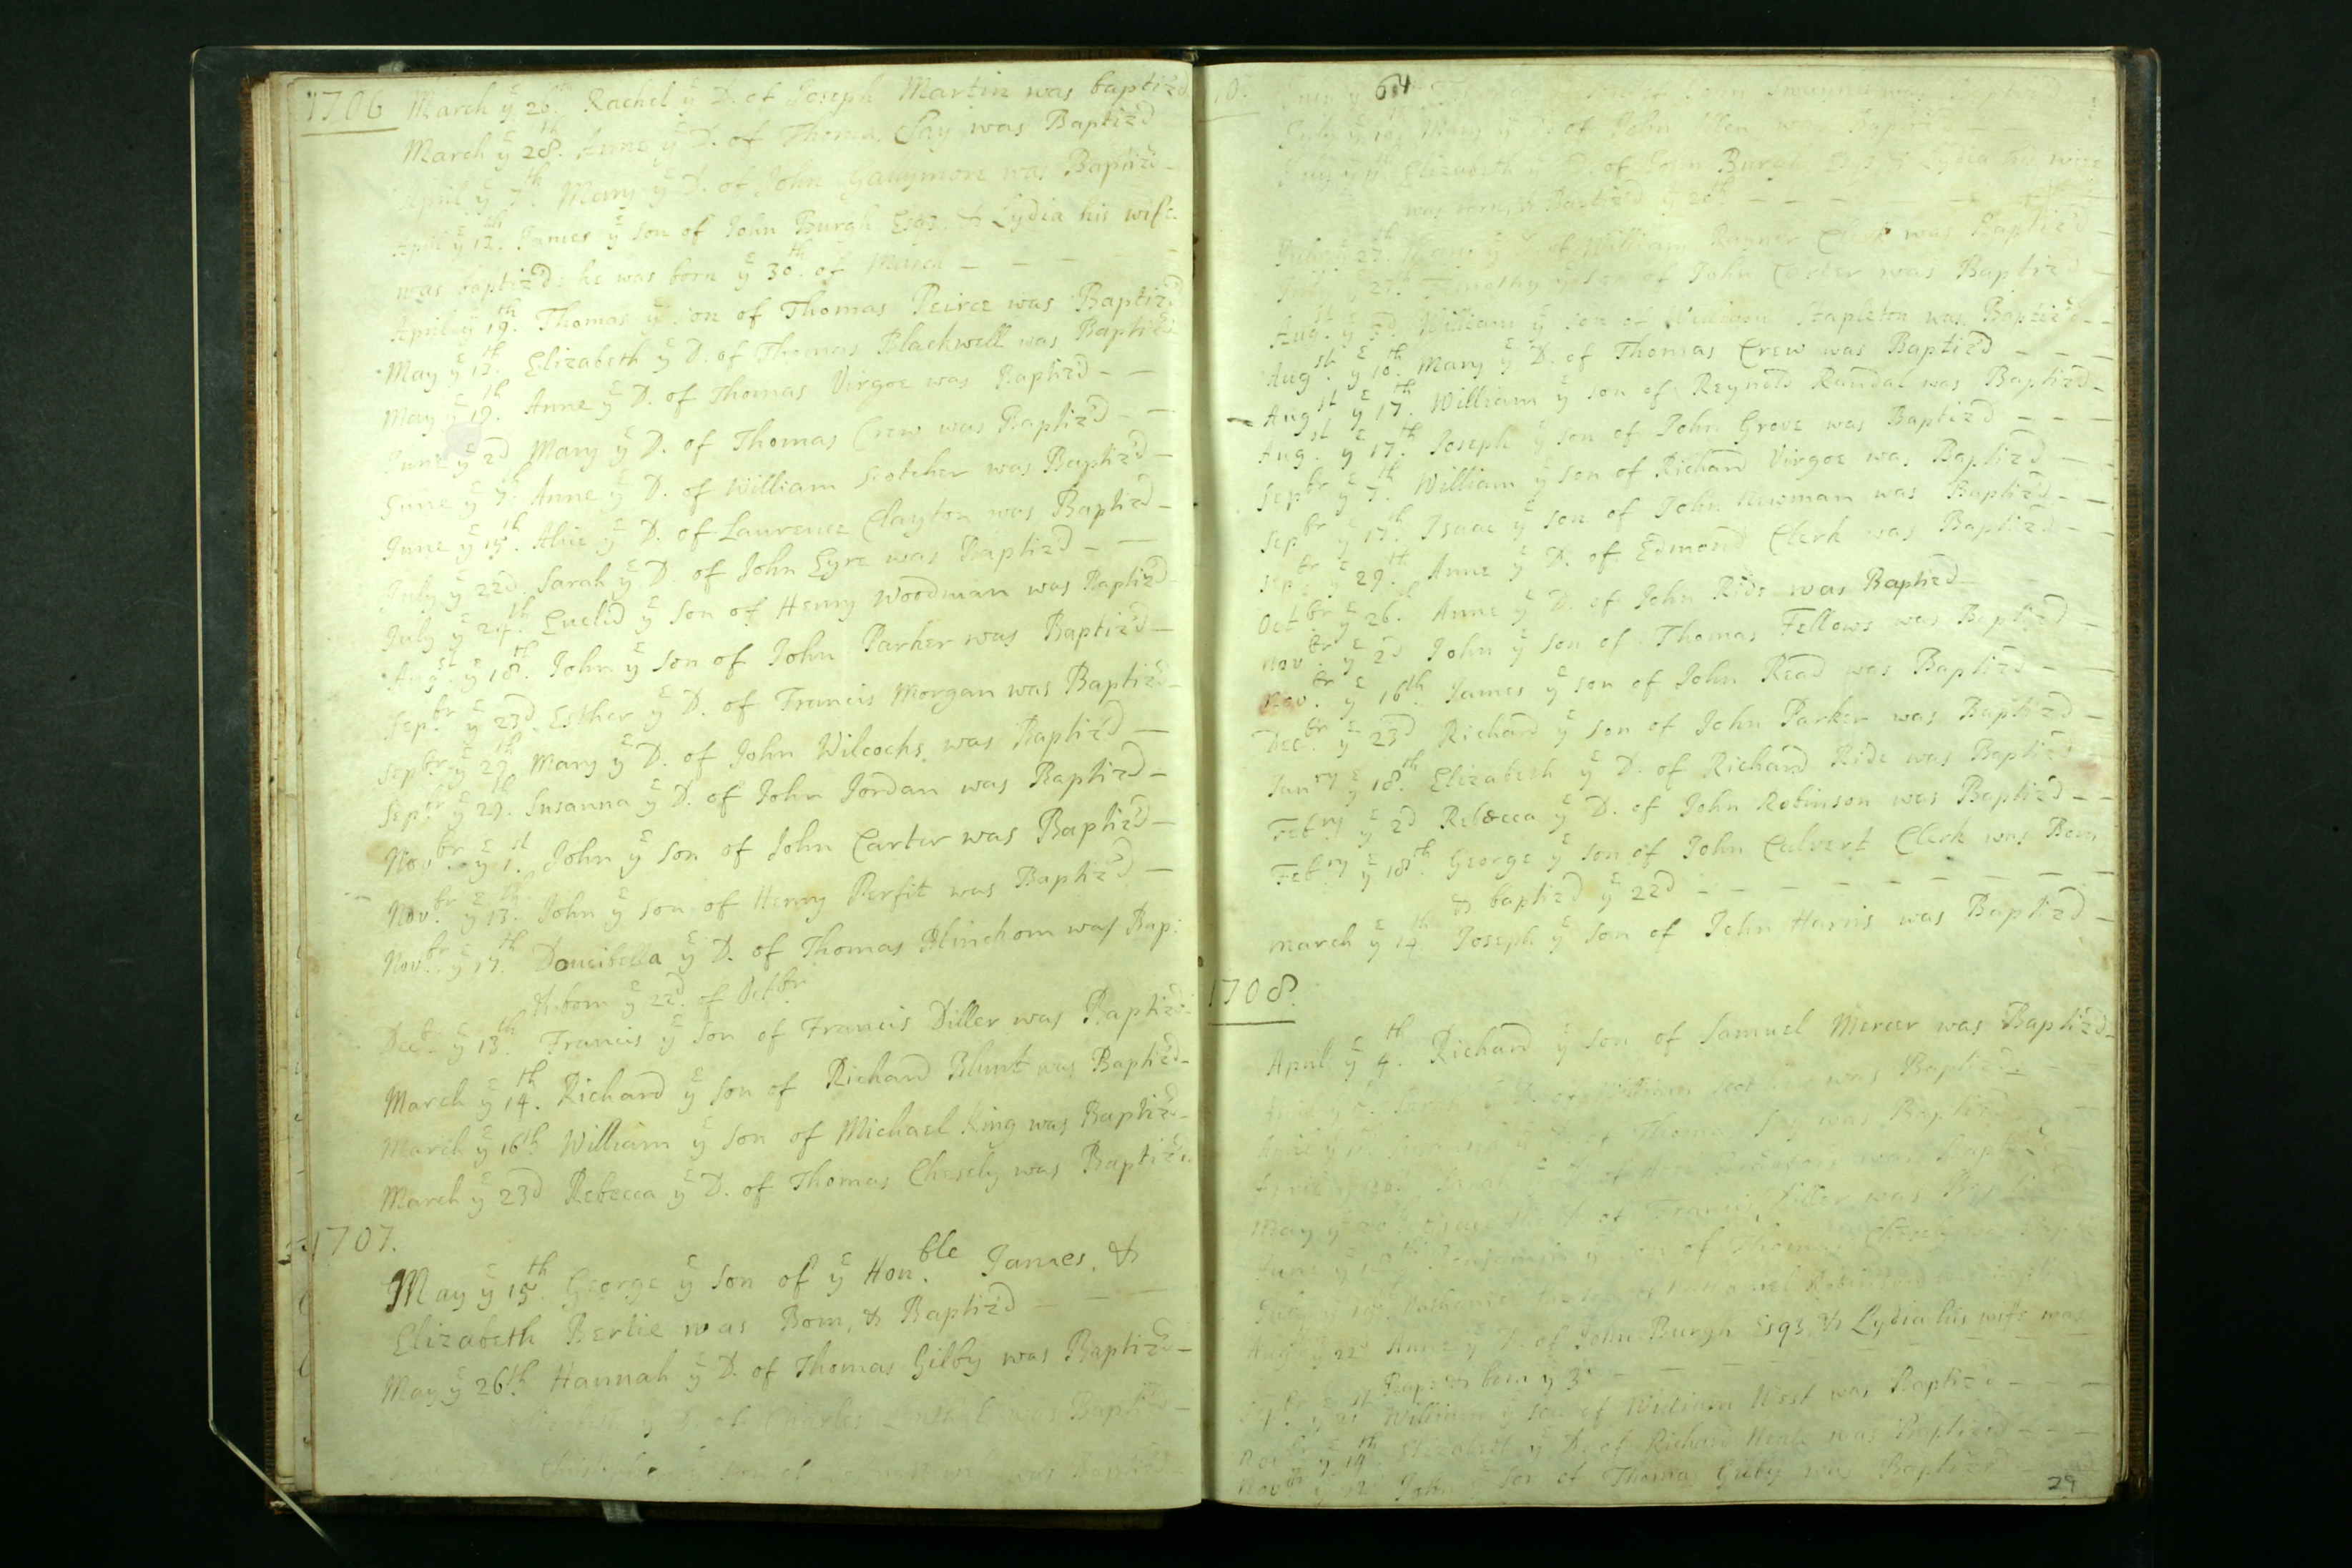 1706 March yͤ 26. Rachel yͤ D. of Joseph Martin was baptiz'd
March yͤ 28th. Anne yͤ D. of Thomas Say was Baptiz'd
April yͤ 7th. Mary yͤ D. of John was Baptiz'd –
April yͤ 12th. James yͤ son of John Burgh Esqr. & Lydia his wife
was baptiz'd: he was born yͤ 30th. of March – – – – –
April yͤ 19th. Thomas yͤ son of Thomas Peirce was Baptiz'd
May yͤ 13th. Elizabeth yͤ D. of Thomas Blackwell was Baptiz'd
May yͤ 19th. Anne yͤ D. of Thomas Virgoe was Baptiz'd – –
June yͤ 2d Mary yͤ D. of Thomas Crew was Baptiz'd – –
June yͤ 7th. Anne yͤ D. of William Scotcher was Baptiz'd –
June yͤ 15th. Alice yͤ D. of Laurence Clayton was Baptiz'd –
July yͤ 22d. Sarah yͤ D of John Eyre was Baptiz'd – –
July yͤ 24th. Euclid yͤ son of Henry Woodman was Baptiz'd
Augst. yͤ 18th. John yͤ son of John Parker was Baptiz'd –
Sepbr. yͤ 23d. Esther yͤ D. of Francis Morgan was Baptiz'd –
Sepbr. yͤ 29th. Mary yͤ D. of John Wilcocks was Baptiz'd –
Sepbr. yͤ 29th. Susanna yͤ D. of John Jordan was Baptiz'd –
Novbr. yͤ 1st. John yͤ son of John Carter was Baptiz'd –
Novbr. yͤ 13th. John yͤ son of Henry Perfit was Baptiz'd –
Novbr. yͤ 17th. Doucibella yͤ D. of Thomas Blinchom was Bap:
& born yͤ 22d. of Octbr.
Decbr. yͤ 13th. Francis yͤ Son of Francis Diller was Baptiz'd
March yͤ 14th. Richard yͤ son of Richard Blunt was Baptiz'd –
March yͤ 16th William yͤ Son of Michael King was Baptiz'd –
March yͤ 23d Rebecca yͤ D. of Thomas Chesely was Baptiz'd
1707.
May yͤ 15th. George yͤ son of yͤ Honble. James, &
Elizabeth Bertie was Born, & Baptiz'd – – –
May yͤ 26th Hannah yͤ D. of Thomas Gilby was Baptiz'd –
yͤ D. of Charles was Baptiz'd –
yͤ son of was Baptiz'd
64
July yͤ Mary yͤ D. of John was Baptiz'd – –
July yͤ Elizabeth yͤ D. of John Burgh Esqr & Lydia his wife
was born, & Baptiz'd yͤ 20th – – – –
July yͤ 27th. yͤ of William Rayner Clerk was Baptiz'd –
July yͤ 27th. Timothy yͤ son of John Carter was Baptiz'd –
Augst. yͤ 3d. William yͤ son of William Stapleton was Baptiz'd – –
Augst. yͤ 10th. Mary yͤ D. of Thomas Crew was Baptiz'd – – –
Augst yͤ 17th. William yͤ son of Reynold Randal was Baptiz'd –
Augst. yͤ 17th. Joseph yͤ son of John Grove was Baptiz'd – – –
Sepbr yͤ 7th. William yͤ son of Richard Virgoe was Baptiz'd – –
Sepbr yͤ 17th. Isaac yͤ son of John Newman was Baptiz'd – –
Sepbr. yͤ 29th. Anne yͤ D. of Edmond Clerk was Baptiz'd – –
Octbr yͤ 26. Anne yͤ D. of John Ride was Baptiz'd
Novbr. yͤ 2d John yͤ son of Thomas Fellows was Baptiz'd –
Novbr. yͤ 16th. James yͤ son of John Read was Baptiz'd – –
Decbr. yͤ 23d Richard yͤ son of John Parker was Baptiz'd –
Janry yͤ 18th. Elizabeth yͤ D. of Richard Ride was Baptiz'd
Febry yͤ 2d Rebecca yͤ D. of John Robinson was Baptiz'd – –
Febry yͤ 18th. George yͤ son of John Calvert Clerk was Born
& baptiz'd yͤ 22d – – – – – – – –
March yͤ 14th. Joseph yͤ son of John Harris was Baptiz'd –
1708.
April yͤ 4th. Richard yͤ son of Samuel Mercer was Baptiz'd –
April yͤ D. of William was Baptiz'd –
April yͤ Susanna yͤ D. of Thomas Say was Baptiz'd
Sarah yͤ D. of was Baptiz'd –
May yͤ D. of Francis Diller was Baptiz'd
June yͤ Benjamin yͤ son of Thomas
July yͤ Nathaniel the son of Nathaniel
Augst yͤ 22d Anne yͤ D. of John Burgh Esqr, & Lydia his wife was
Bapt: & born yͤ 3d – – – –
Sepbr. yͤ 21st William yͤ son of William West was Baptiz'd – – –
yͤ 14th. Elizabeth yͤ D. of Richard was Baptiz'd – – –
Novbr yͤ John yͤ son of Thomas Gilby was Baptiz'd –
29